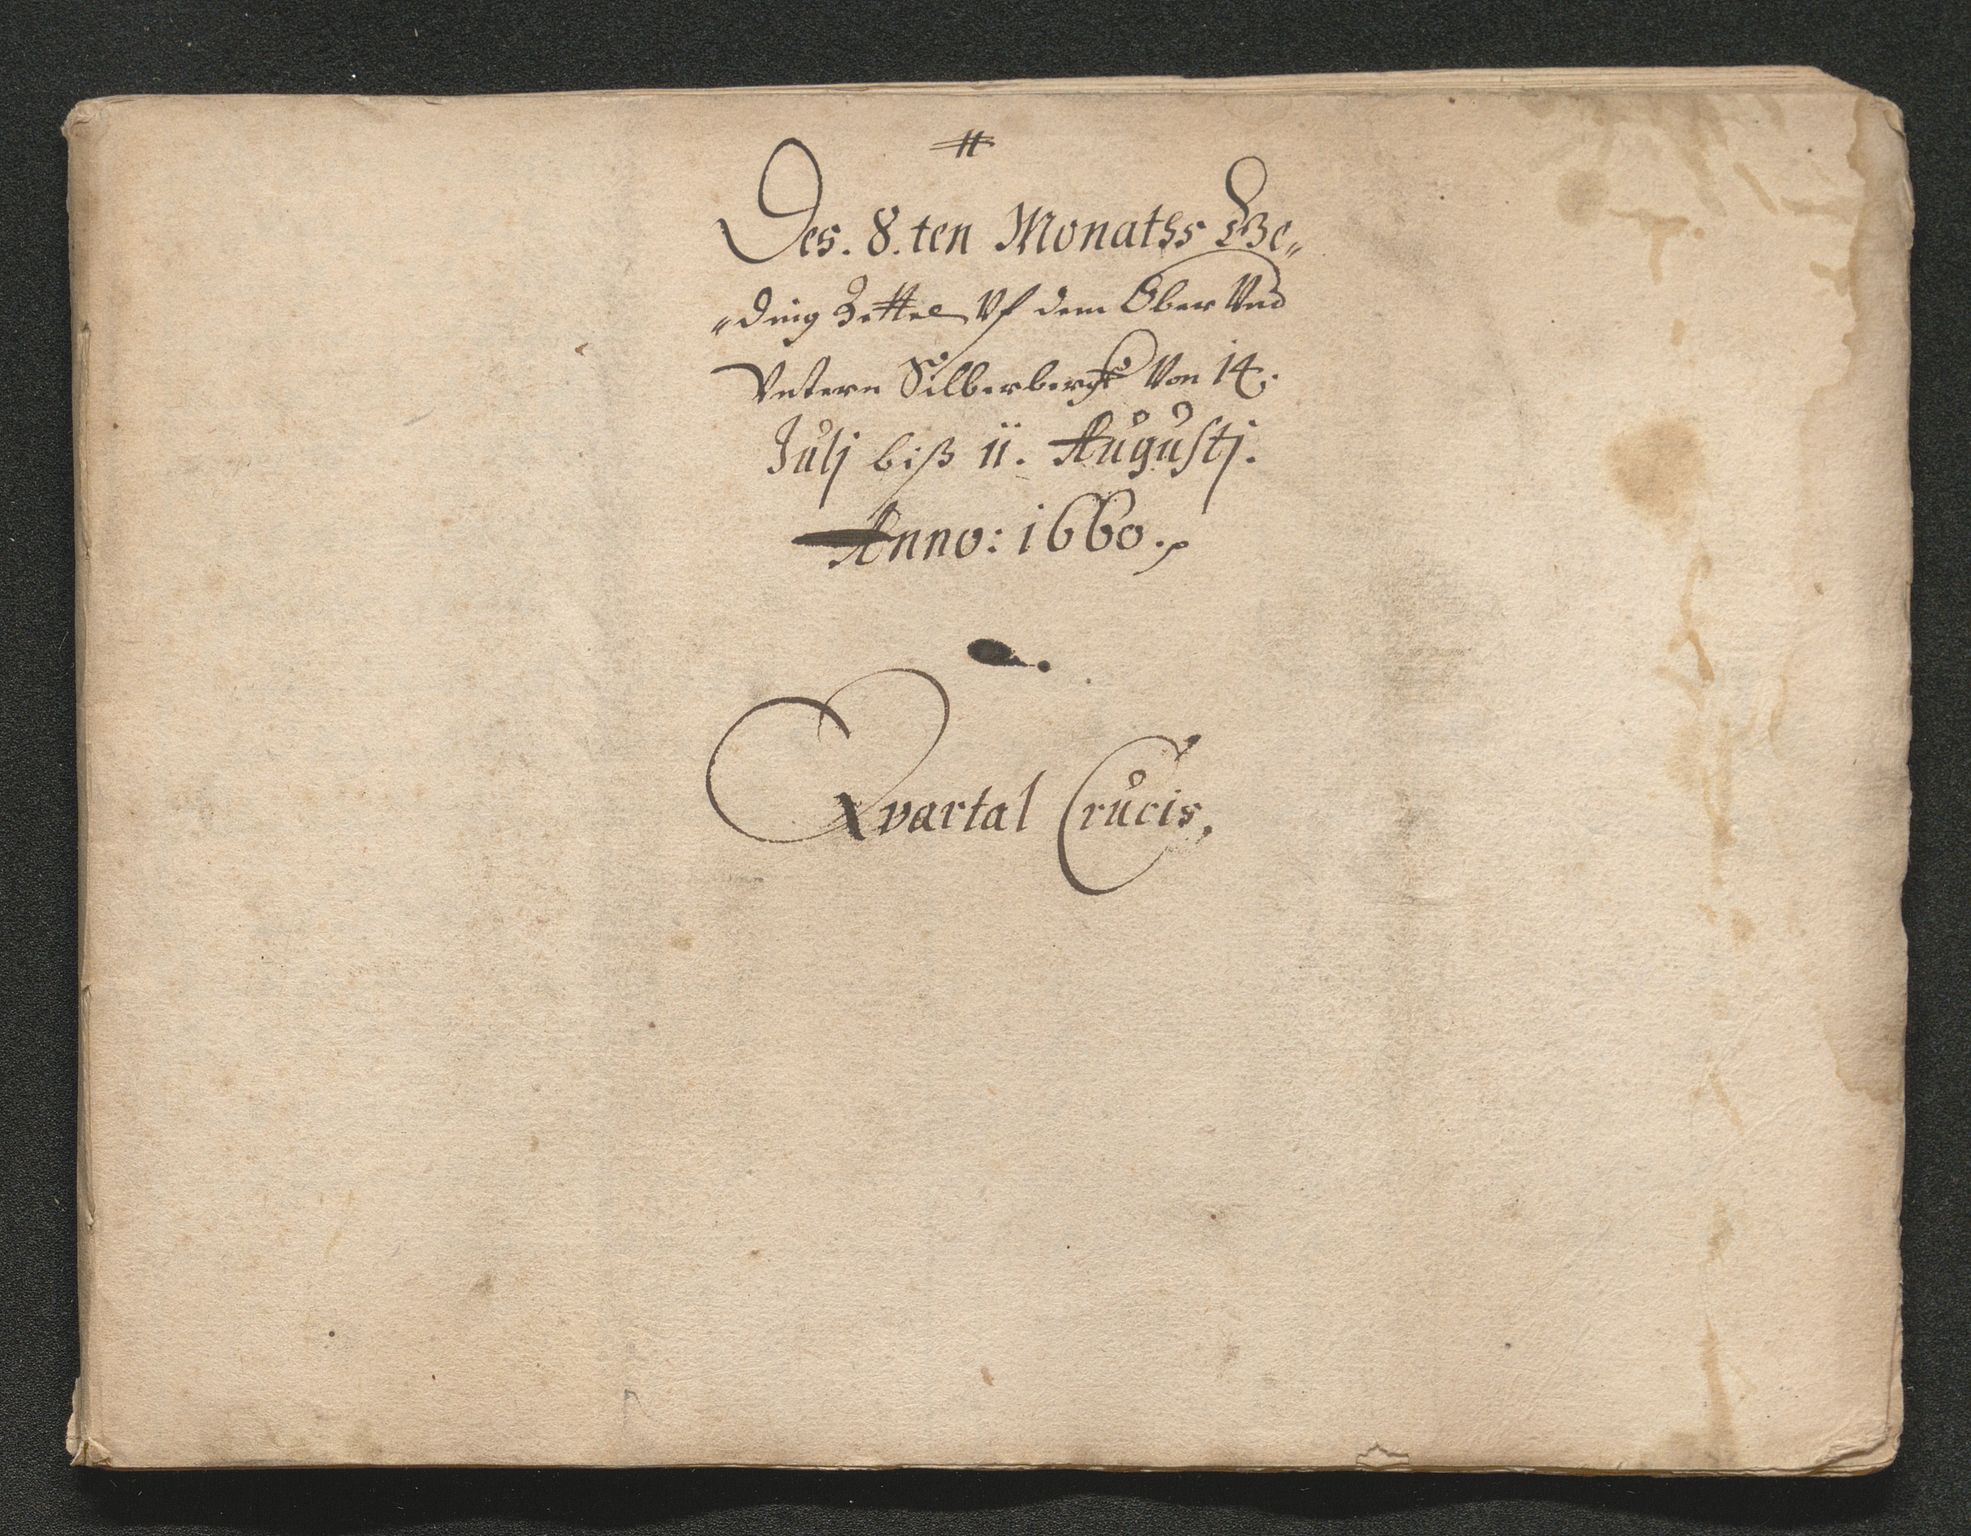 #
Des. 8.ten Monatßs Ge„
„ding Zettel Vf dem Ober Vnd
Vntern Silberbergk Von 14.
Julj biß 11. Augustj.
Anno: 1660.
Qvartal Crucis,